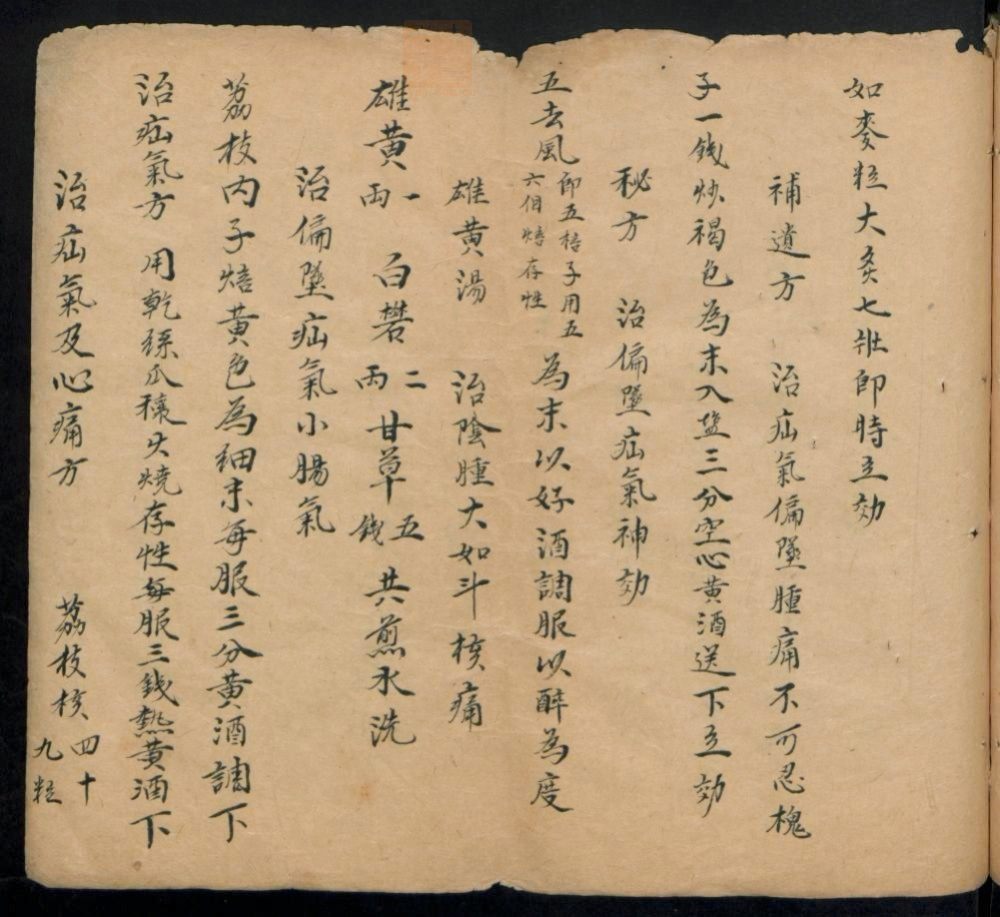 如麥粒大灸七壯即時立効
補遺方 治疝氣偏墜腫痛不可忍槐
子一錢炒褐色為末入盐三分空心黃酒送下立効
秘方 治偏墜疝氣神効
五去風 即五棓子用五六個焙存性 為末以好酒調服以醉為度
雄黃湯 治陰腫大如斗核痛
雄黃一両 白礬二両 甘草五錢 共煎水洗
治偏墜疝氣小腸氣
荔枝內子焙黃色為細末每服三分黃酒調下
治疝氣方 用乾絲瓜穰火燒存性每服三錢熱黃酒下
治疝氣及心痛方 荔枝核四十九粒